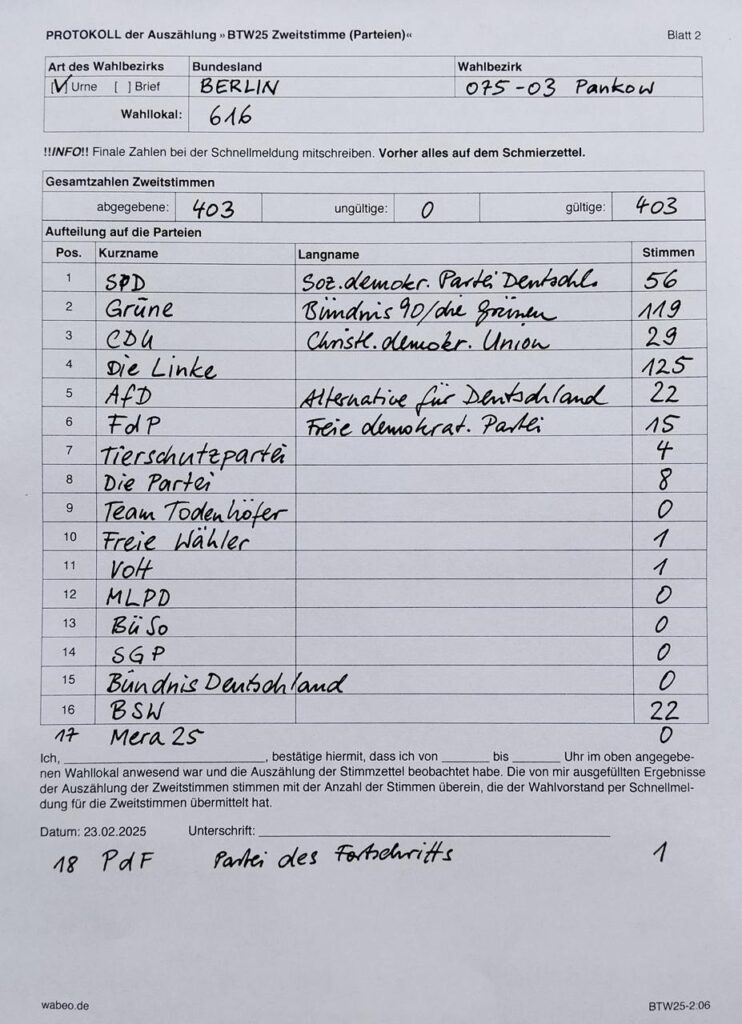 PROTOKOLL der Auszählung »BTW25 Zweitstimme (Parteien)« Blatt 2
Art des Wahlbezirks Bundesland Wahlbezirk
[V] Urne [ ] Brief BERLIN 075-03 Pankow
Wahllokal: 616
!!INFO!! Finale Zahlen bei der Schnellmeldung mitschreiben. Vorher alles auf dem Schmierzettel.
Gesamtzahlen Zweitstimmen
abgegebene: 403 ungültige: 0 gültige: 403
Aufteilung auf die Parteien
Pos. Kurzname Langname Stimmen
1 SPD Soz.demokr. Partei Deutschl. 56
2 Grüne Bündnis 90/die grünen 119
3 CDU Christl.demokr. Union 29
4 Die Linke 125
5 AfD Alternative für Deutschland 22
6 FdP Freie demokrat. Partei 15
7 Tierschutzpartei 4
8 Die Partei 8
9 Team Todenhöfer 0
10 Freie Wähler 1
11 Volt 1
12 MLPD 0
13 BüSo 0
14 SGP 0
15 Bündnis Deutschland 0
16 BSW 22
17 Mera 25 0
Ich, ____________________, bestätige hiermit, dass ich von _______ bis _______ Uhr im oben angegebe-
nen Wahllokal anwesend war und die Auszählung der Stimmzettel beobachtet habe. Die von mir ausgefüllten Ergebnisse
der Auszählung der Zweitstimmen stimmen mit der Anzahl der Stimmen überein, die der Wahlvorstand per Schnellmel-
dung für die Zweitstimmen übermittelt hat.
Datum: 23.02.2025 Unterschrift: ____________________
18 PdF Partei des Fortschritts 1
wabeo.de BTW25-2:06